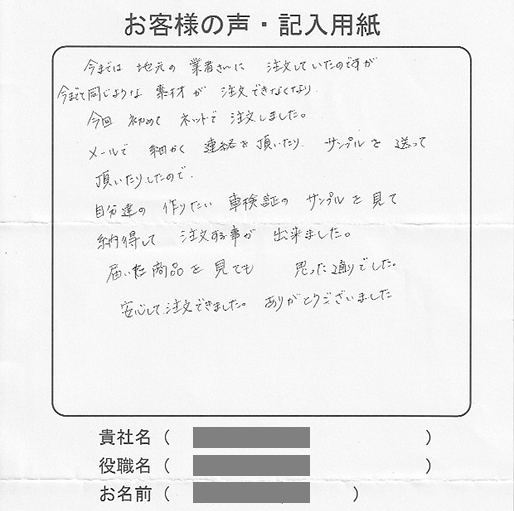 お客様の声・記入用紙
今までは 地元の 業者さんに 注文していたのですが
今まで同じような 素材が 注文できなくなり
今回 初めて ネットで 注文しました。
メールで 細かく 連絡を頂いたり サンプルを 送って
頂いたりしたので、
自分達の 作りたい 車検証の サンプルを 見て
納得して 注文する事が 出来ました。
届いた商品を 見ても 思った通りでした。
安心して注文できました。 ありがとうございました
貴社名（ ）
役職名（ ）
お名前（ ）